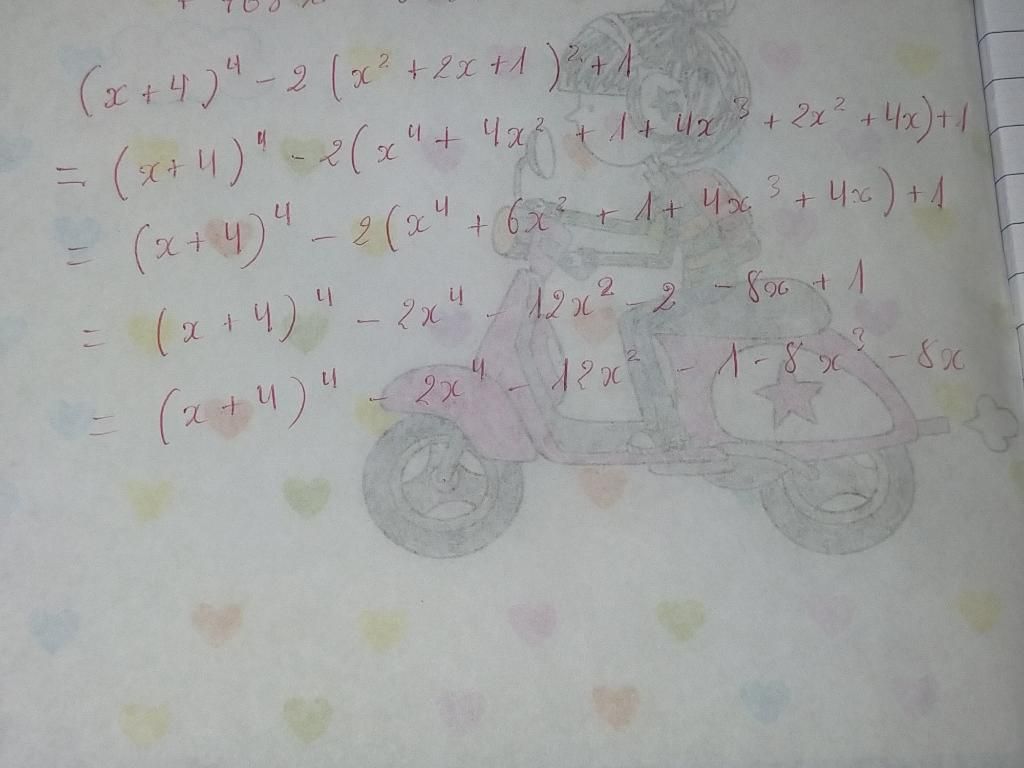 (x+4)⁴ - 2 (x² + 2x + 1)² + 1
= (x+4)⁴ - 2(x⁴ + 4x² + 1 + 4x³ + 2x² + 4x) + 1
= (x+4)⁴ - 2(x⁴ + 6x² + 1 + 4x³ + 4x) + 1
= (x+4)⁴ - 2x⁴ - 12x² - 2 - 8x + 1
= (x+4)⁴ - 2x⁴ - 12x² - 1 - 8x³ - 8x